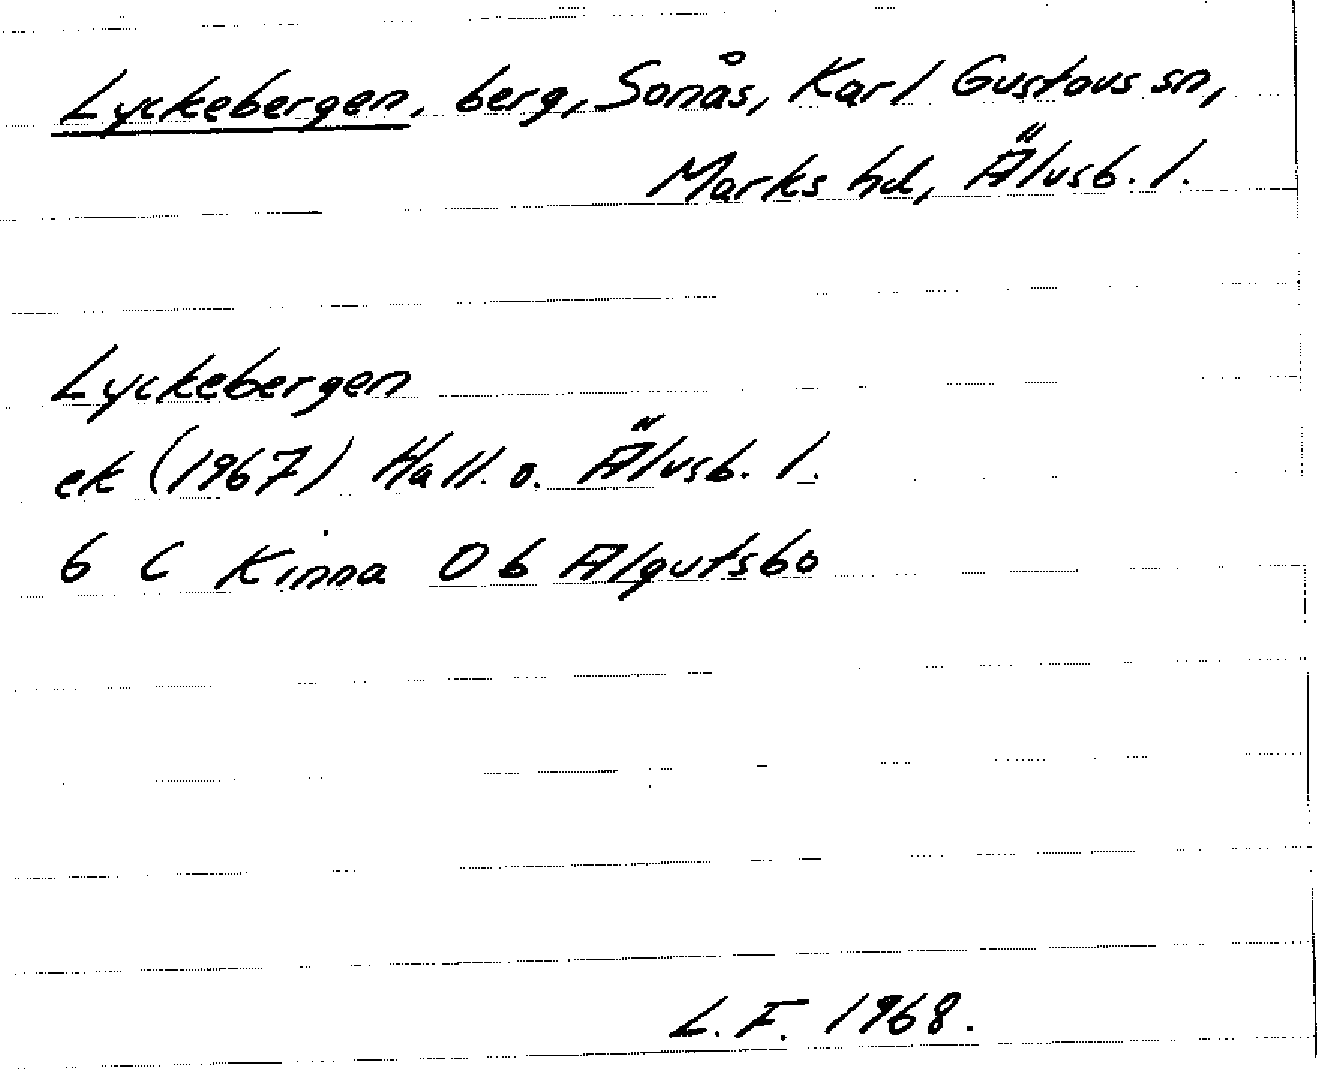 Lyckebergen, berg, Sonås, Karl Gustavs sn,
Marks hd, Älvsb. l.
Lyckebergen
ek (1967) Hall. o. Älvsb. l.
6 C Kinna 0 b Algutsbo
L. F. 1968.